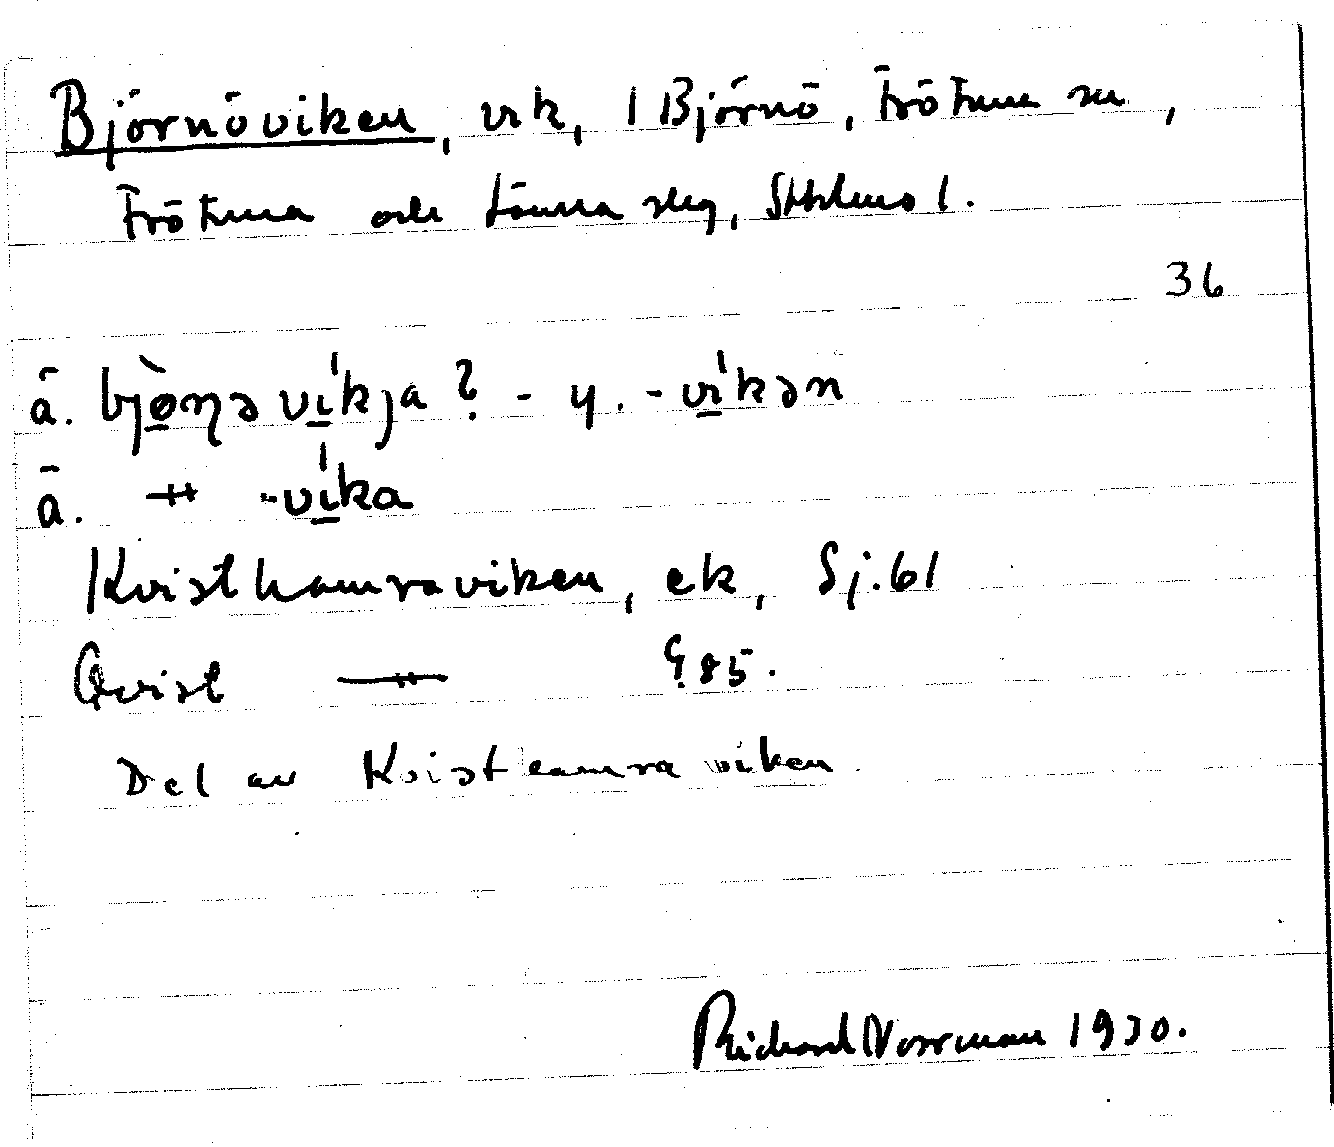 Björnöviken, vik, i Björnö, Frötuna sn,
Frötuna och Länna slg, Sthlms l.
36
ä. bjò̱ɳəvi̱kja? - y. -vi̱kən
ä. –〃– -vi̱ka
Kvisthamraviken, ek, Sj. 61
Qvist –〃– G. 85.
Del av Kvisthamraviken
Richard Norrman 1930.